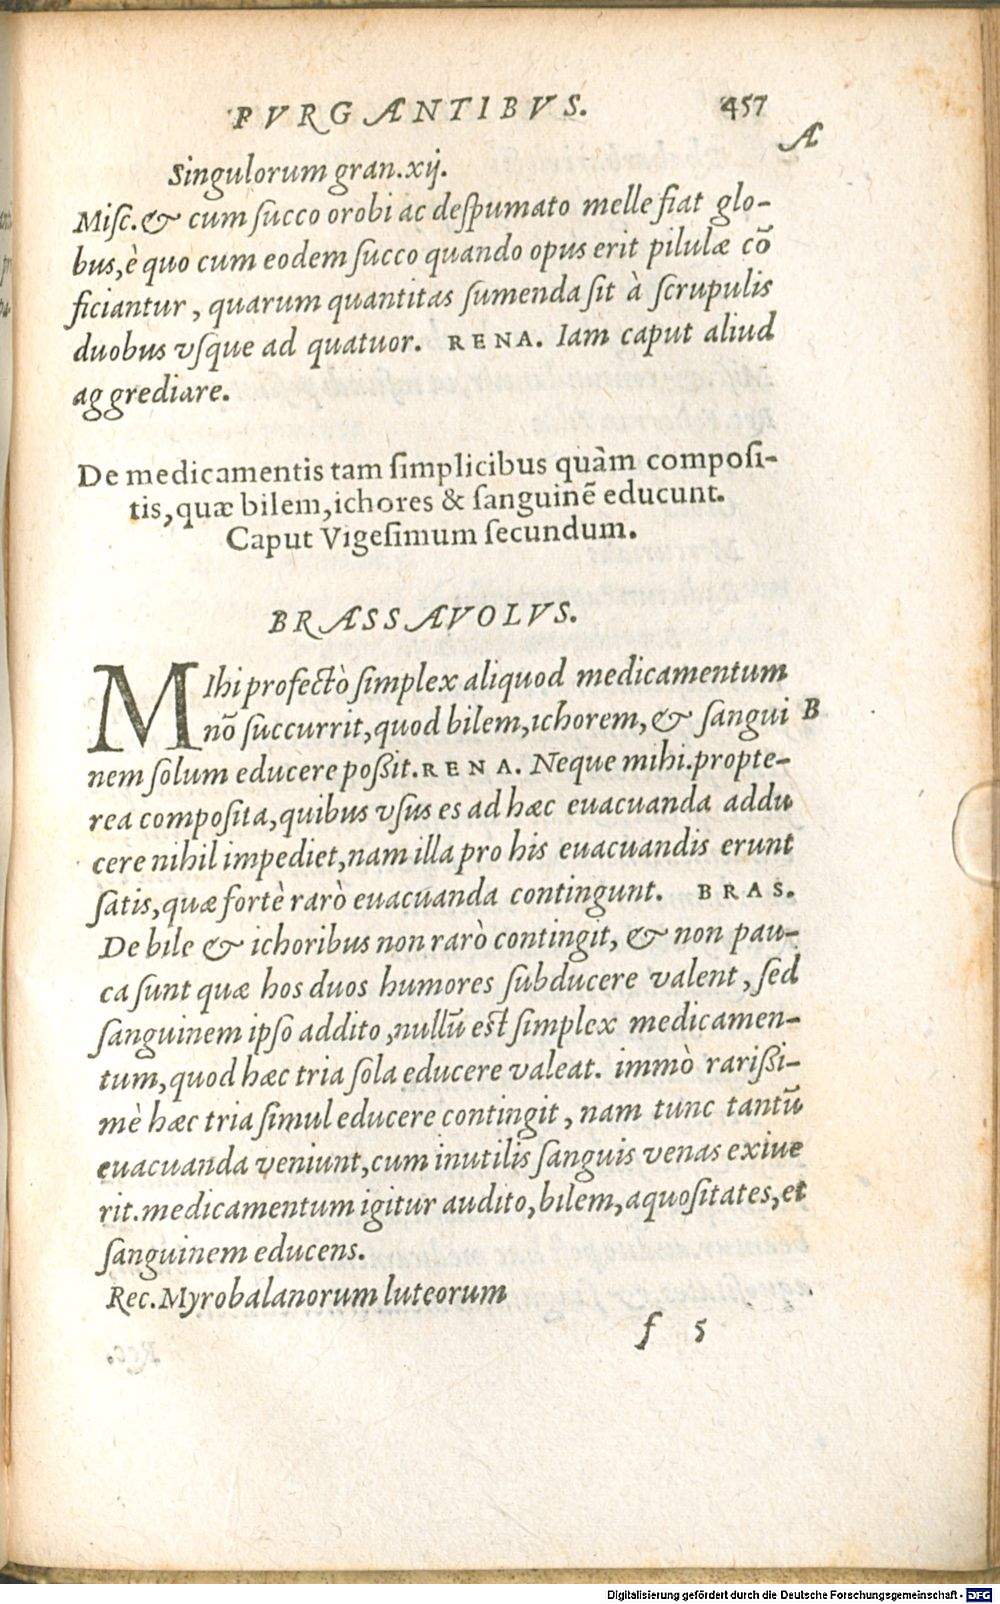 PVRGANTIBVS. 457
A
Singulorum gran.xij.
Misc.& cum succo orobi ac despumato melle fiat glo-
bus,è quo cum eodem succo quando opus erit pilulæ cō
ficiantur, quarum quantitas sumenda sit à scrupulis
duobus vsque ad quatuor. RENA. Iam caput aliud
aggrediare.
De medicamentis tam simplicibus quàm composi-
tis,quæ bilem,ichores & sanguinē educunt.
Caput Vigesimum secundum.
BRASSAVOLVS.
MIhi profectò simplex aliquod medicamentum
nō succurrit,quod bilem,ichorem,& sangui B
nem solum educere possit.RENA. Neque mihi.propte-
rea composita,quibus vsus es ad hæc euacuanda addu
cere nihil impediet,nam illa pro his euacuandis erunt
satis,quæ fortè rarò euacuanda contingunt. BRAS.
De bile & ichoribus non rarò contingit, & non pau-
ca sunt quæ hos duos humores subducere valent, sed
sanguinem ipso addito,nullū est simplex medicamen-
tum,quod hæc tria sola educere valeat. immò rarissi-
mè hæc tria simul educere contingit, nam tunc tantū
euacuanda veniunt,cum inutilis sanguis venas exiue
rit.medicamentum igitur audito,bilem,aquositates,et
sanguinem educens.
Rec.Myrobalanorum luteorum
f 5
Digitalisierung gefördert durch die Deutsche Forschungsgemeinschaft - DFG